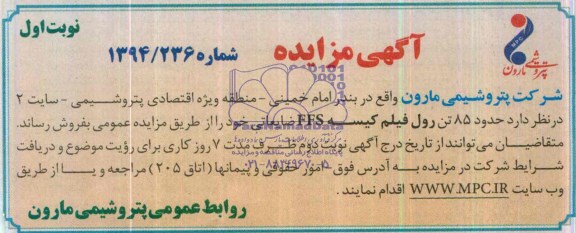 نوبت اول
آگهی مزایده
شماره ۱۳۹۴/۲۳۶
MPC
پتروشیمی مارون
شرکت پتروشیمی مارون واقع در بندر امام خمینی - منطقه ویژه اقتصادی پتروشیمی - سایت ۲
درنظر دارد حدود ۸۵ تن رول فیلم کیسه FFS ضایعاتی خود را از طریق مزایده عمومی بفروش رساند.
متقاضیان می‌توانند از تاریخ درج آگهی نوبت دوم ظرف مدت ۷ روز کاری برای رؤیت موضوع و دریافت
شرایط شرکت در مزایده به آدرس فوق - امور حقوقی و پیمانها (اتاق ۲۰۵) مراجعه و یا از طریق
وب سایت WWW.MPC.IR اقدام نمایند.
روابط عمومی پتروشیمی مارون